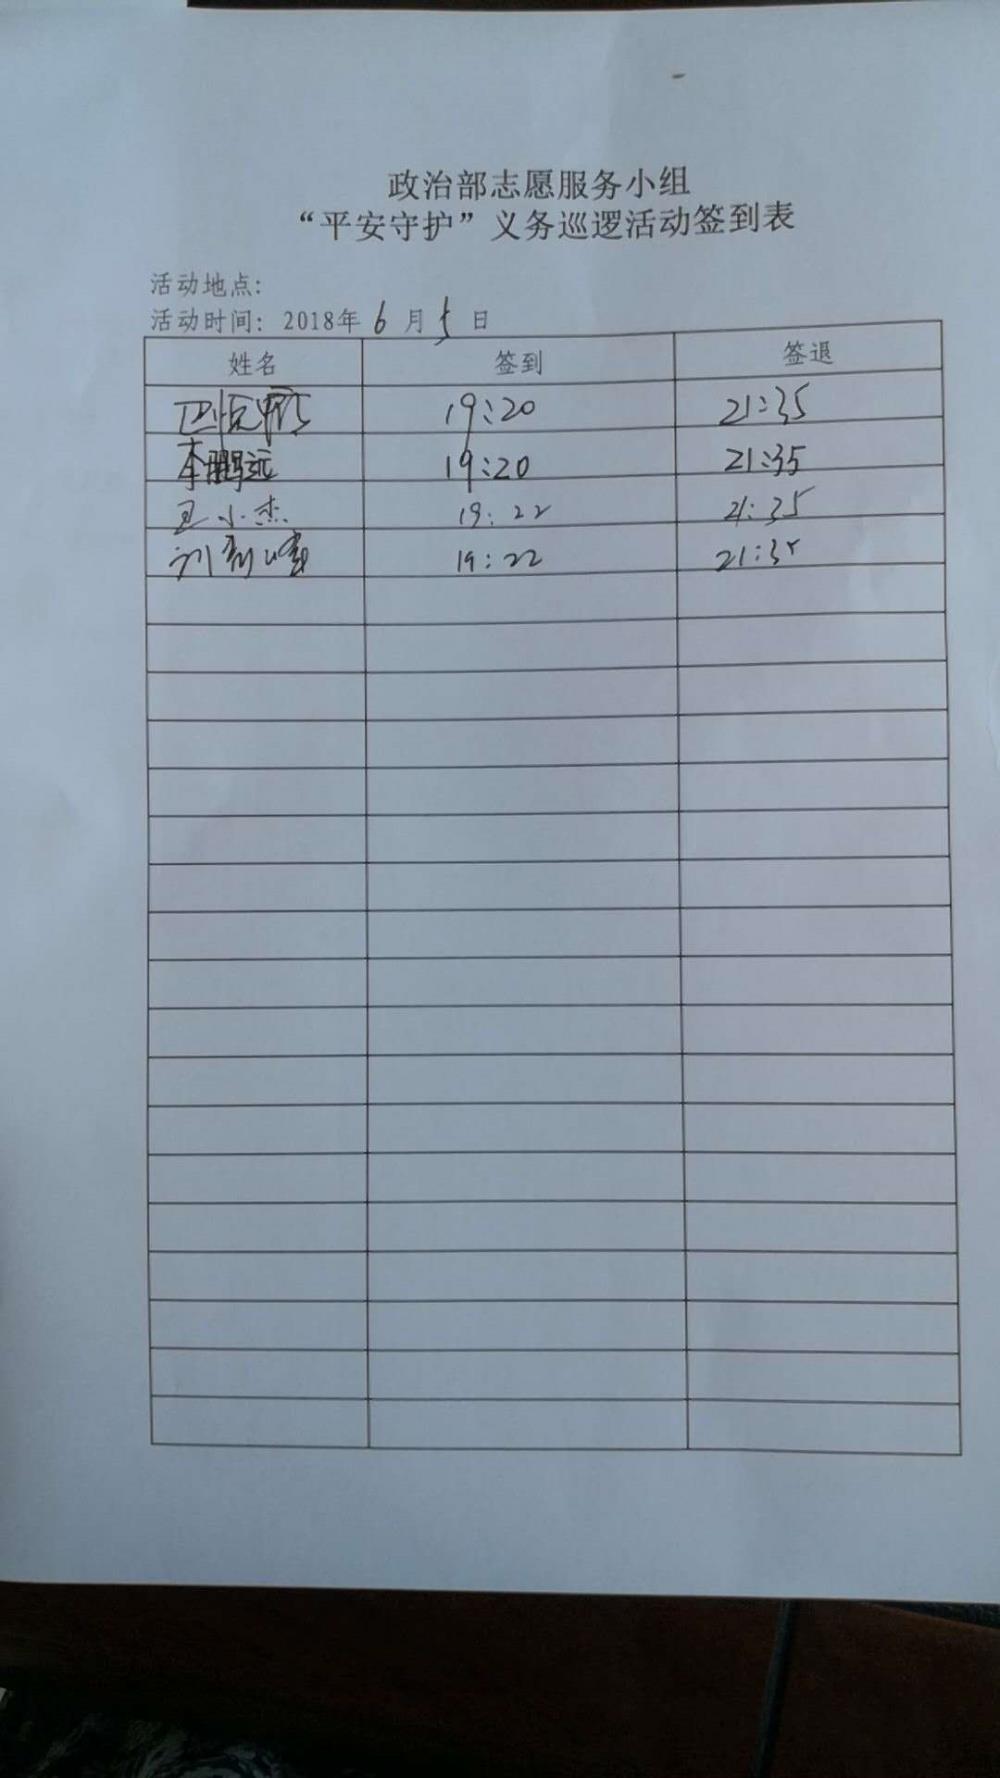 政治部志愿服务小组
“平安守护”义务巡逻活动签到表
活动地点:
活动时间: 2018年 6 月 5 日
姓名 签到 签退
19:20 21:35
李鹏远 19:20 21:35
王小杰 19:22 21:35
刘 19:22 21:35